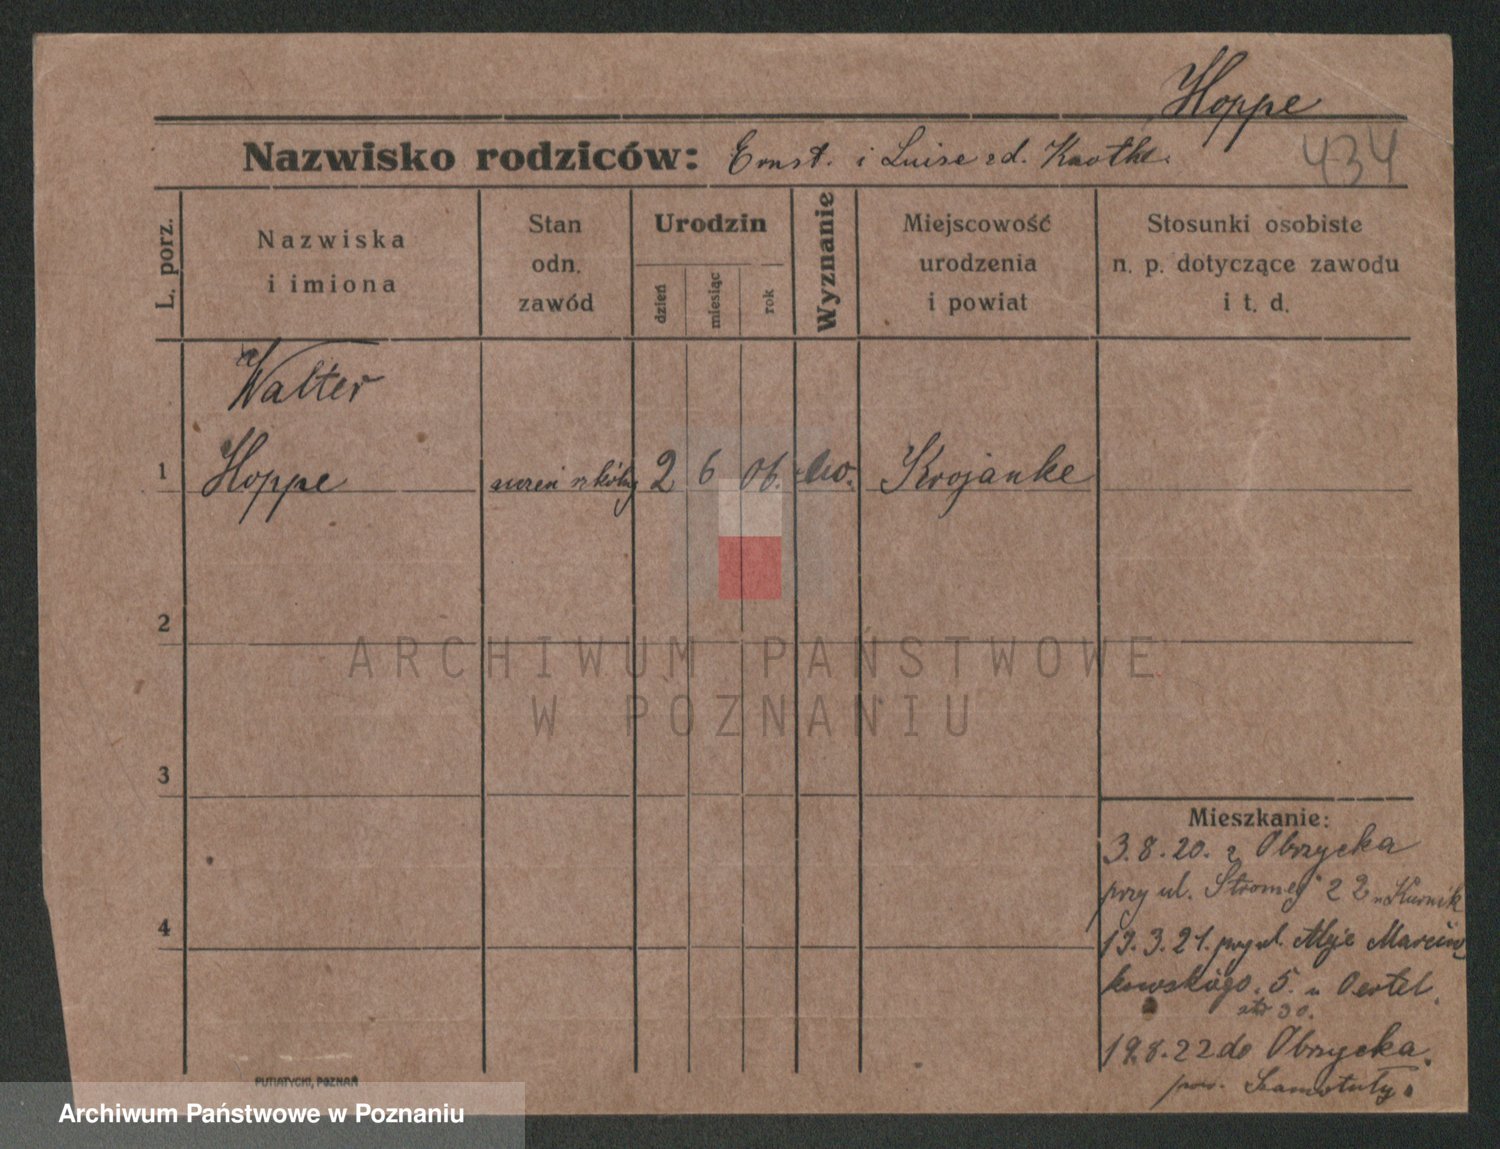 Hoppe
434
Nazwisko rodziców: Ernst. i Luise zd. Knothe.
L. porz.
Nazwiska
i imiona
Stan
odn.
zawód
Urodzin
dzień
miesiąc
rok
Wyznanie
Miejscowość
urodzenia
i powiat
Stosunki osobiste
n. p. dotyczące zawodu
i t. d.
Walter
1 Hoppe uczeń szkólny 2 6 06. ew. Krojanke
2
ARCHIWUM PAŃSTWOWE
W POZNANIU
3
4
Mieszkanie:
3.8.20. z Obrzycka
przy ul. Stromej 22 u Kurnik
19.3.21. przy ul. Aleje Marcin
kowskiego. 5. u Oertel.
30.
19.8.22 do Obrzycka.
pow. Szamotuły.
PUTIATYCKI, POZNAŃ
Archiwum Państwowe w Poznaniu